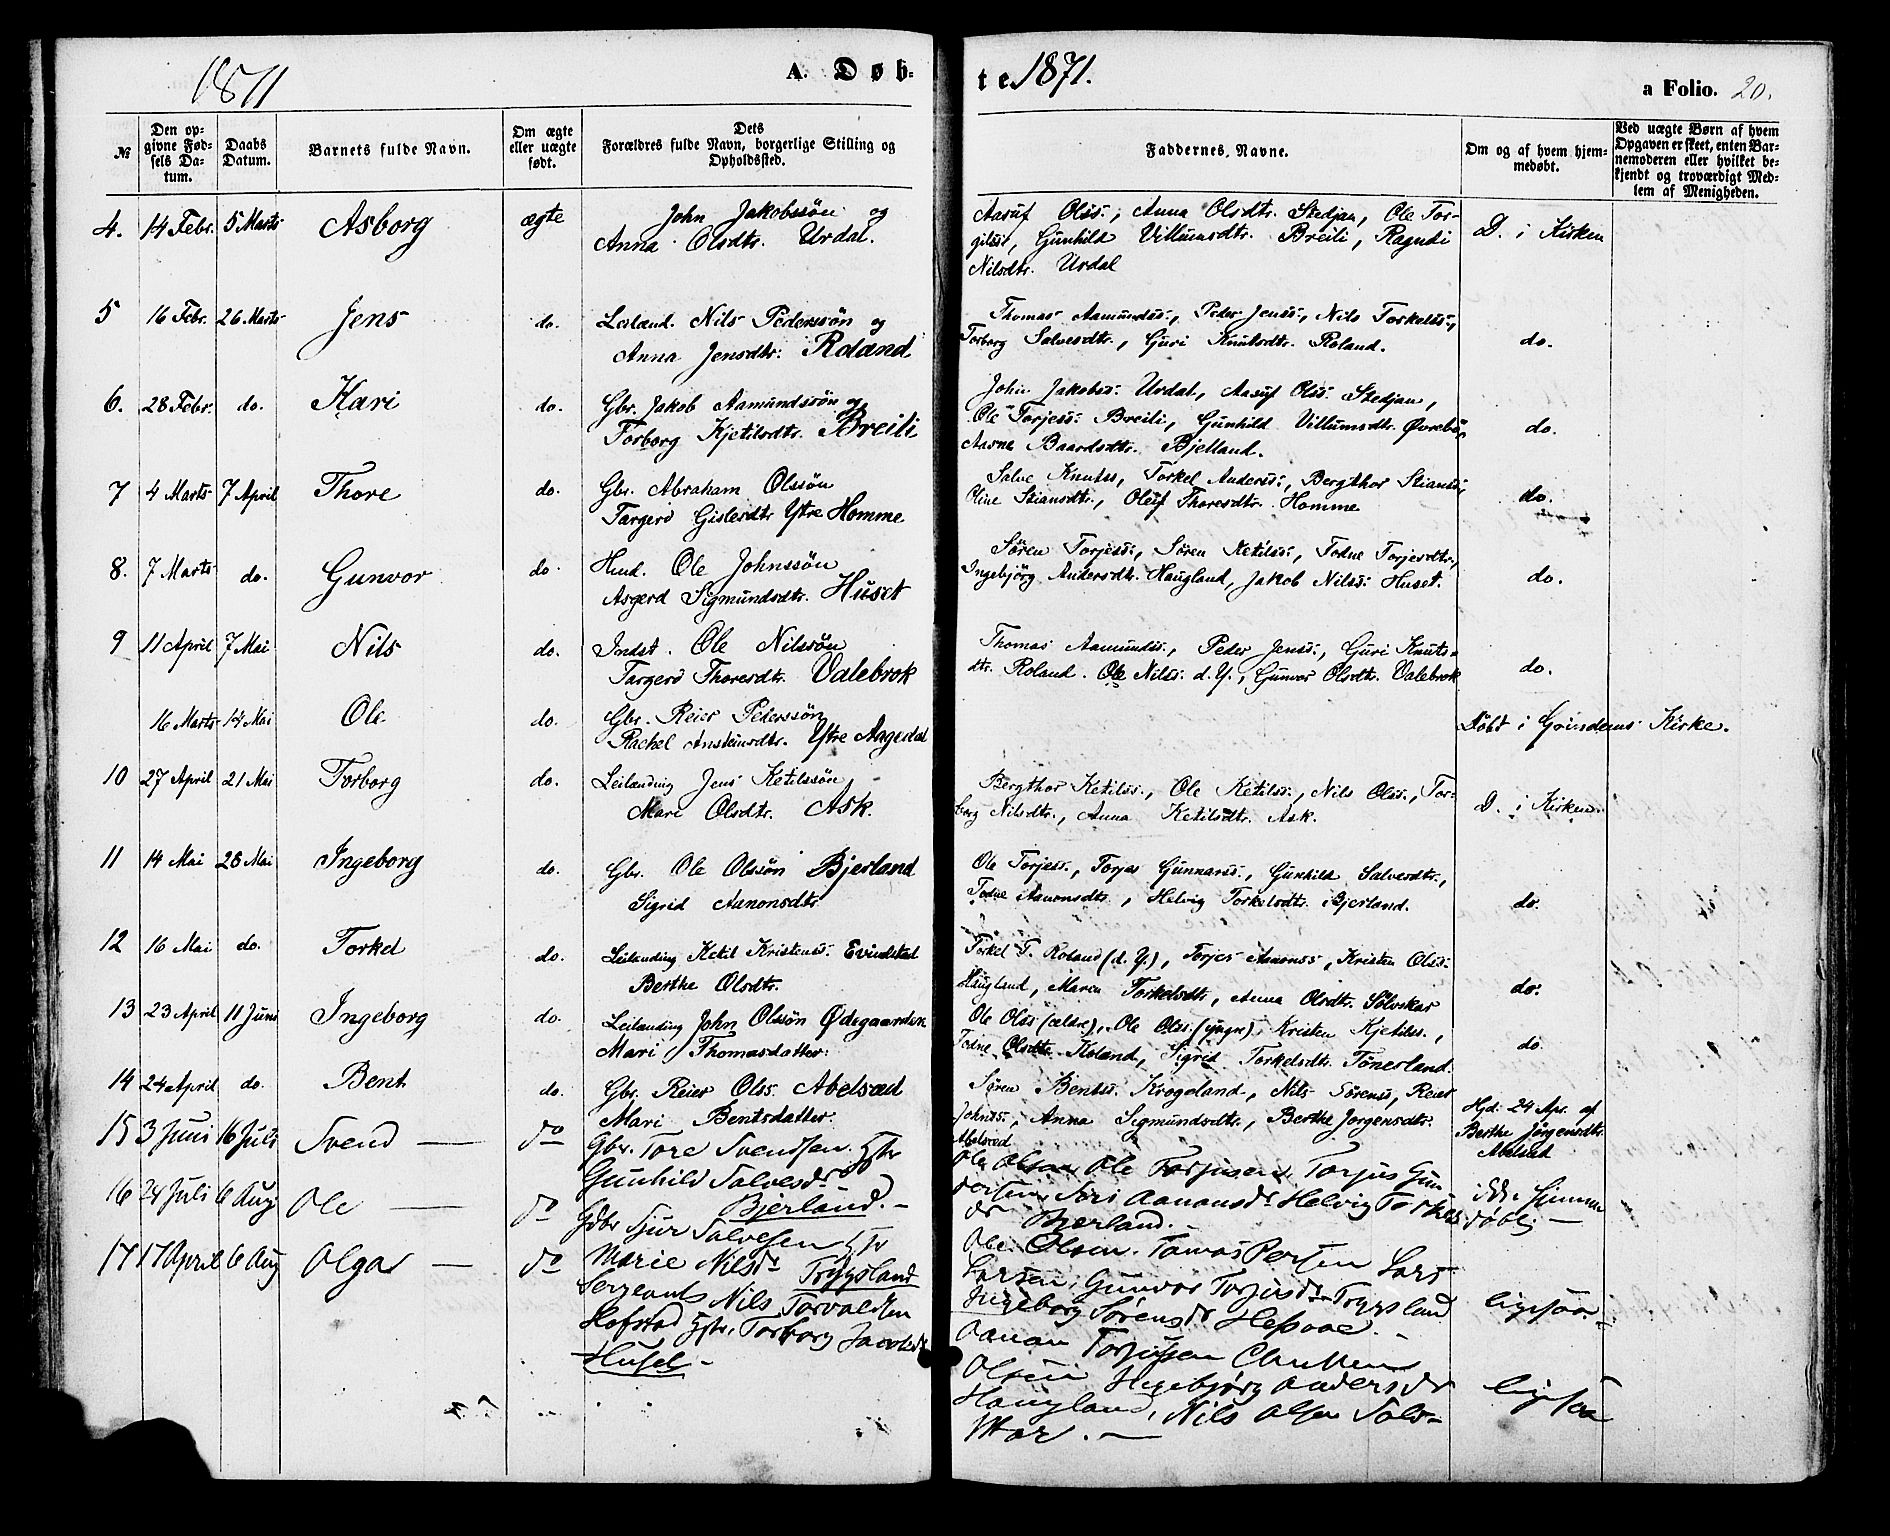 1871
A. Døb-
te. 1871.
a Folio. 20.
№
Den op-
givne Fød-
sels Da-
tum.
Daabs
Datum.
Barnets fulde Navn.
Om ægte
eller uægte
født.
Dets
Forældres fulde Navn, borgerlige Stilling og
Opholdssted.
Faddernes, Navne.
Om og af hvem hjem-
medøbt.
Ved uægte Børn af hvem
Opgaven er skeet, enten Bar-
nemoderen eller hvilket be-
kjendt og troværdigt Med-
lem af Menigheden.
4. 14 Febr. 5 Marts Asborg ægte
John Jakobssön og
Anna Olsdtr. Urdal.
Aasuf Olss., Anna Olsdtr. Stedjan, Ole Tor-
gilss., Gunhild Villumsdtr. Breili, Ragndi
Nilsdtr. Urdal
D. i Kirken
5 16 Febr. 26 Marts Jens do.
Leiland. Nils Pederssön og
Anna Jensdtr. Roland
Thomas Aamundss., Peder Jenss., Nils Torkelss.,
Torborg Salvesdtr., Guri Knutsdtr. Roland.
do.
6. 28 Febr. do. Kari do.
Gbr. Jakob Aamundssön og
Torborg Kjetilsdtr. Breili
John Jakobss. Urdal, Aasuf Olss. Stedjan,
Ole Torjess. Breili, Gunhild Villumsdtr. Øvrebö,
Aasne Baardsdtr. Bjelland.
do.
7 4 Marts 7 April Thore do.
Gbr. Abraham Olssön
Targerd Gislesdtr Ytre Homme
Salve Knutss, Torkel Anderss., Bergthor Stianss.
Oline Stiansdtr., Oluf Thoresdtr. Homme
do.
8. 7 Marts do. Gunvor do.
Hmd. Ole Johnssön
Asgerd Sigmundsdtr. Huset
Søren Torjess., Søren Ketilss., Todne Torjesdtr.,
Ingebjörg Andersdtr. Haugland, Jakob Nilss. Huset.
do.
9 11 April 7 Mai Nils do.
Indst. Ole Nilssön
Targerd Thoresdtr. Valebrok
Thomas Aamundss., Peder Jenss., Guri Knuts-
dtr. Roland. Ole Nilss. d. Y., Gunvor Olsdtr. Valebrok
do.
16 Marts 14 Mai Ole do.
Gbr. Reier Pederssön
Rachel Ansteinsdtr. Ytre Aagedal
Döbt i Grindems Kirke.
10 27 April 21 Mai Torborg do.
Leilending Jens Ketilssön
Mari Olsdtr. Ask.
Bergthor Ketilss., Ole Ketilss., Nils Olss., Tor-
borg Nilsdtr., Anna Ketilsdtr. Ask.
D. i Kirken.
11 14 Mai 28 Mai Ingeborg do.
Gbr. Ole Olssön Bjerland
Sigrid Aanonsdtr
Ole Torjess., Torjes Gunnarss., Gunhild Salvesdtr.,
Todne Aanonsdtr., Helvig Torkelsdtr. Bjerland.
do.
12 16 Mai do. Torkel do.
Leilending Ketil Kristenss. Evindstad
Berthe Olsdtr.
Torkel T. Roland (d. Y.), Torjes Aanonss, Kristen Olss.
Haugland, Maren Torkelsdtr, Anna Olsdtr. Sölvskar
do.
13 23 April 11 Juni Ingeborg do.
Leilending John Olssön Ødegaarden
Mari Thomasdatter.
Ole Olss (ældre), Ole Olss. (yngre), Kristen Kjetilss.,
Todne Olsdtr. Roland, Sigrid Torkelsdtr. Tönerland.
do
14 24 April do. Bent do.
Gbr. Reier Olss. Abelsæd
Mari Bentsdatter.
Søren Bentss. Krogeland, Nils Sörenss, Reier
Johnss., Anna Sigmundsdtr., Berthe Jorgensdtr.
Abelsæd
Hjd. 24 Apr. af
Berthe Jørgensdtr.
Abelsæd
15 3 Juni 16 Juli Svend — do
Gbr. Tore Svendsen Hstr
Gunhild Salvesdr
Bjerland. —
Ole Olsen Ole Torjusen Torjus Gun
dersen, Siri Aanonsdr Helvig Torkels
dr Bjerland. —
ikke hjemme
døbt —
16 24 Juli 6 Aug Ole — do
Gdbr Sjur Salvesen Hstr
Marie Nilsdr Trygsland
Ole Olsen. Tomas Persen Lars
Larsen, Gunvor Torjusdr Trygsland
Ingeborg Sörensdr Hessaae. —
ligesaa
17 17 April 6 Aug Olga — do
Sergeant Nils Torvaldsen
Hofstad Hstr, Torborg Jacobsdr
Husel —
Aanon Torjusen Christen
Olsen Ingebjørg Andersdr
Haugland, Nils Olsen Solv-
skar. —
ligesaa